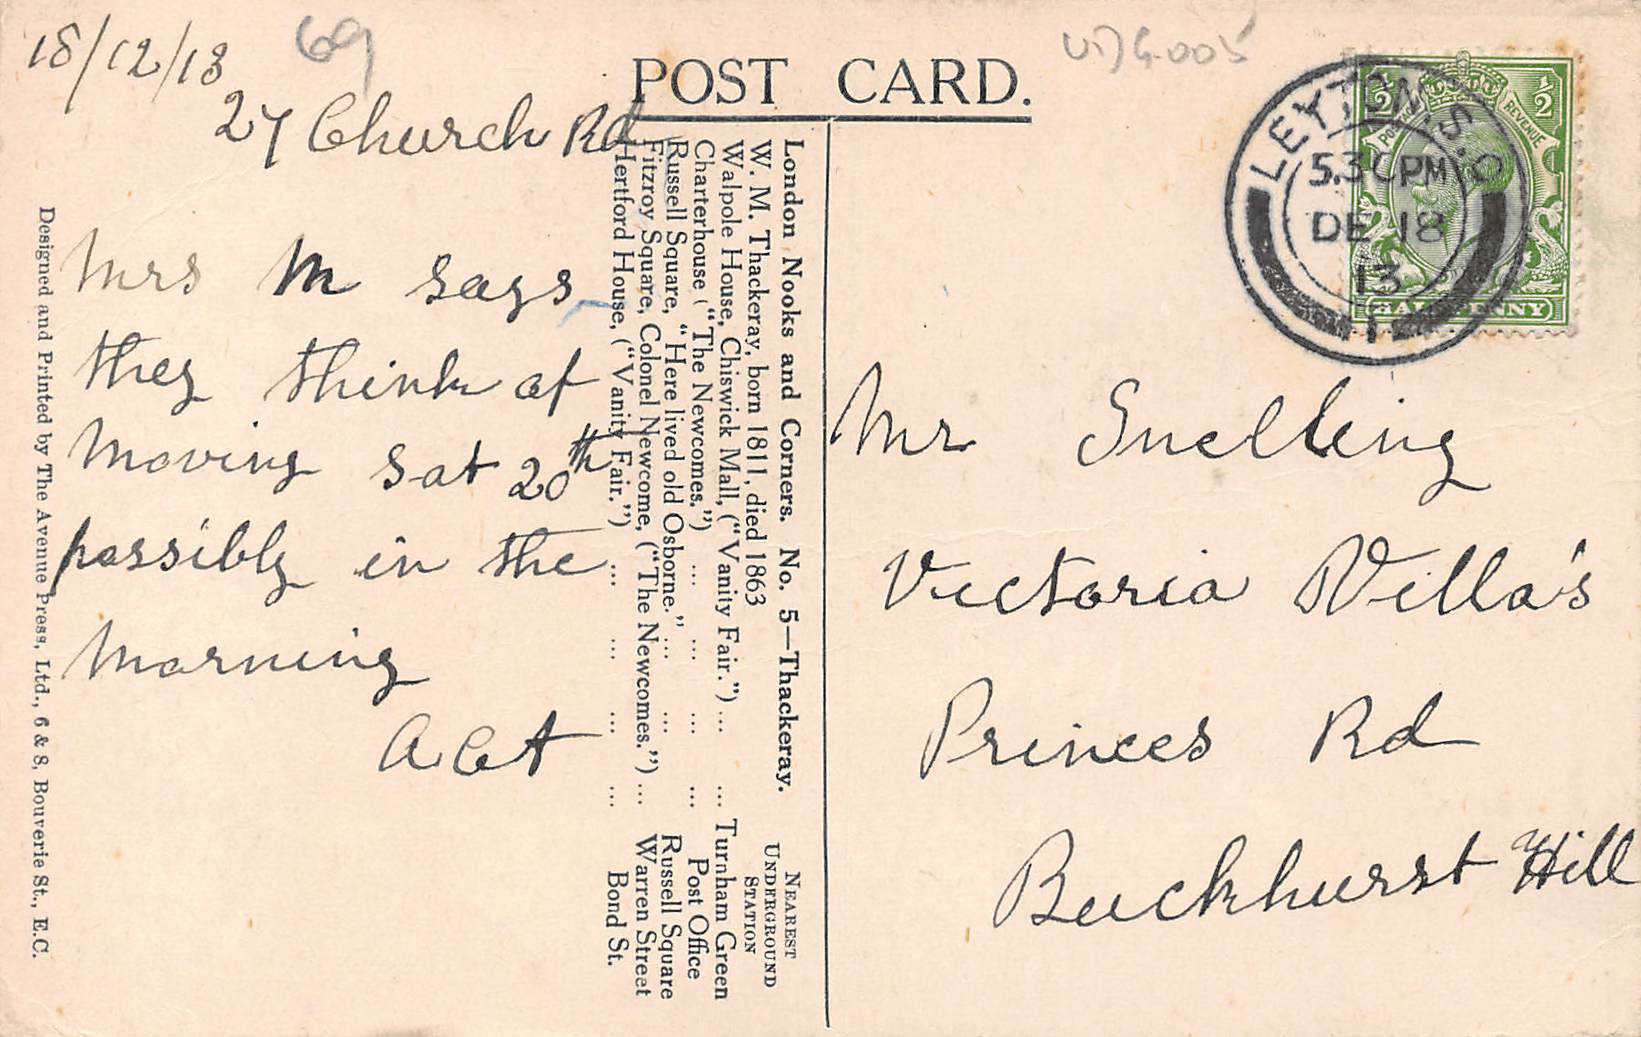 18/12/13
69
27 Church Rd
Mrs M says
they think of
moving Sat 20th
possibly in the
morning
POST CARD.
LEYTONSTONE
5.30PM
DE 18
13
½ ½
POSTAGE REVENUE
HALFPENNY
Mr Snelling
Victoria Villa's
Princes Rd
Buckhurst Hill
London Nooks and Corners. No. 5—Thackeray.
NEAREST
UNDERGROUND
STATION
W. M. Thackeray, born 1811, died 1863
Walpole House, Chiswick Mall, ("Vanity Fair.") ... ... Turnham Green
Charterhouse ("The Newcomes.") ... ... ... ... Post Office
Russell Square, "Here lived old Osborne." ... ... Russell Square
Fitzroy Square, Colonel Newcome, ("The Newcomes.") ... Warren Street
Hertford House, ("Vanity Fair.") ... ... ... ... Bond St.
Designed and Printed by The Avenue Press, Ltd., 6 & 8, Bouverie St., E.C.